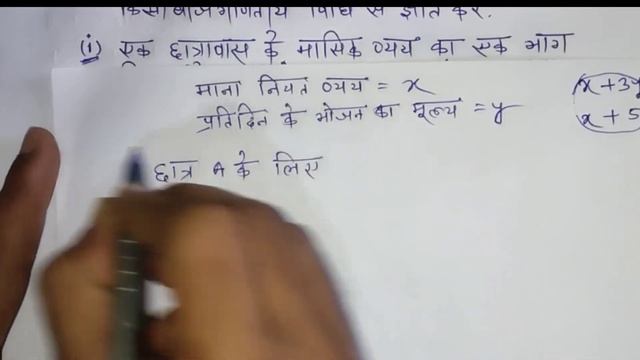 किसी बीजगणितीय विधि से ज्ञात करें.
(i) एक छात्रावास के मासिक व्यय का एक भाग
माना नियत व्यय = x
प्रतिदिन के भोजन का मूल्य = y
x + 3y
x + 5
छात्र A के लिए